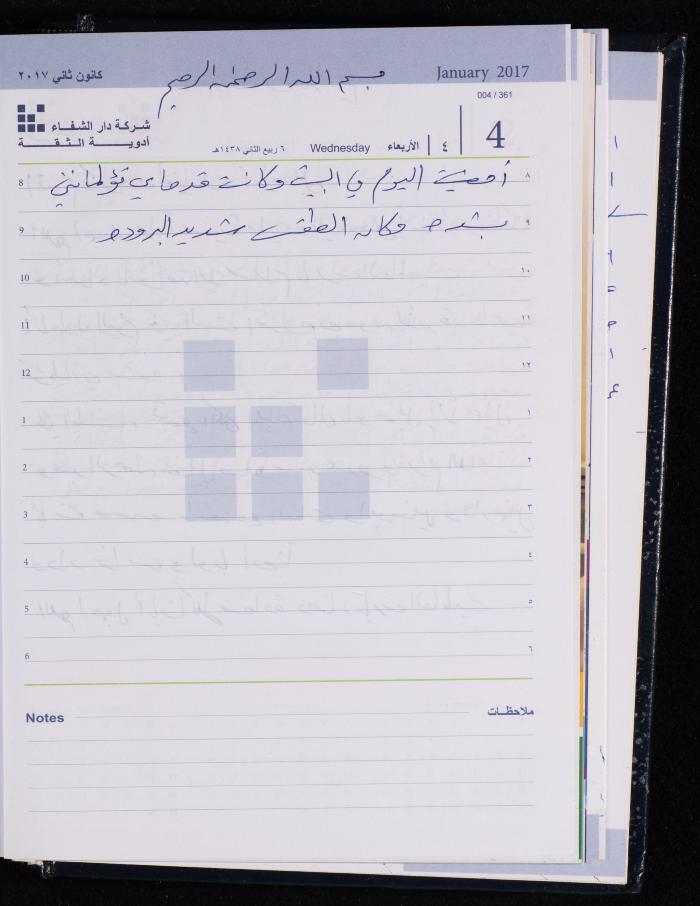 كانون ثاني ٢٠١٧
بسم الله الرحمن الرحيم
January 2017
004 / 361
شركة دار الشفاء
أدويـة الثقـة
٦ ربيع الثاني ١٤٣٨هـ
Wednesday
الأربعاء
٤
4
8 أمضيت اليوم في البيت وكانت قدماي تؤلمانني ٨
9 بشده وكان الطقس شديد البروده ٩
10 ١٠
11 ١١
12 ١٢
1 ١
2 ٢
3 ٣
4 ٤
5 ٥
6 ٦
Notes ملاحظـات